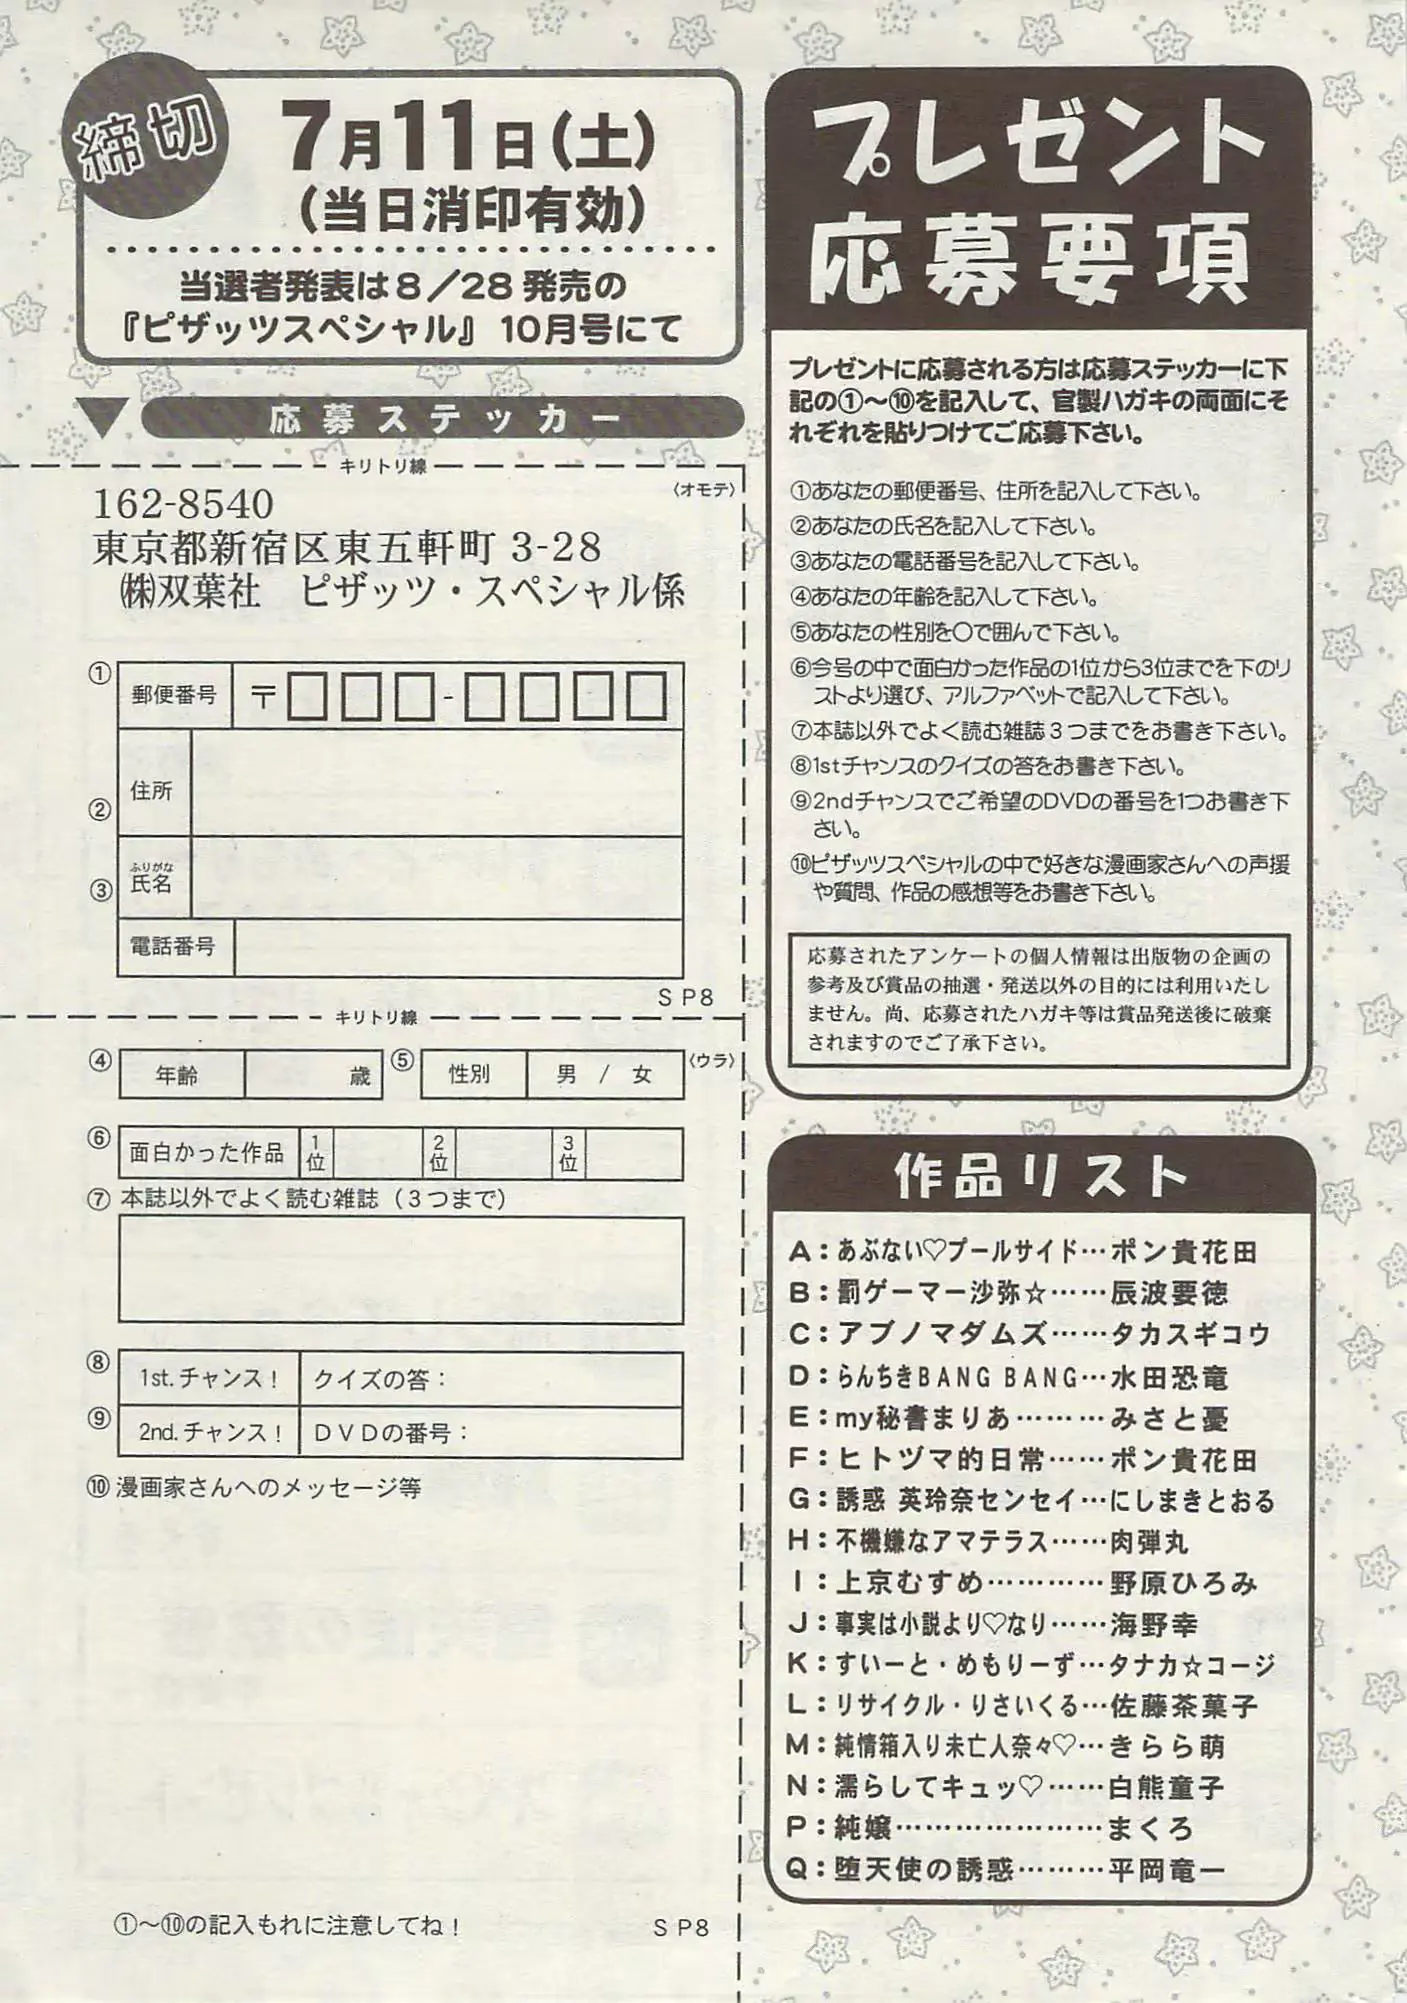 締切
7月11日(土)
(当日消印有効)
当選者発表は8/28発売の
『ピザッツスペシャル』10月号にて
応募ステッカー
キリトリ線
〈オモテ〉
162-8540
東京都新宿区東五軒町 3-28
㈱双葉社　ピザッツ・スペシャル係
①
郵便番号 〒□□□-□□□□
住所
②
ふりがな
氏名
③
電話番号
SP8
キリトリ線
〈ウラ〉
④ 年齢 歳 ⑤ 性別 男 / 女
⑥ 面白かった作品 1位 2位 3位
⑦ 本誌以外でよく読む雑誌(3つまで)
⑧ 1st.チャンス! クイズの答:
⑨ 2nd.チャンス! DVDの番号:
⑩ 漫画家さんへのメッセージ等
①〜⑩の記入もれに注意してね!
SP8
プレゼント
応募要項
プレゼントに応募される方は応募ステッカーに下
記の①〜⑩を記入して、官製ハガキの両面にそ
れぞれを貼りつけてご応募下さい。
①あなたの郵便番号、住所を記入して下さい。
②あなたの氏名を記入して下さい。
③あなたの電話番号を記入して下さい。
④あなたの年齢を記入して下さい。
⑤あなたの性別を○で囲んで下さい。
⑥今号の中で面白かった作品の1位から3位までを下のリ
ストより選び、アルファベットで記入して下さい。
⑦本誌以外でよく読む雑誌3つまでをお書き下さい。
⑧1stチャンスのクイズの答をお書き下さい。
⑨2ndチャンスでご希望のDVDの番号を1つお書き下
さい。
⑩ピザッツスペシャルの中で好きな漫画家さんへの声援
や質問、作品の感想等をお書き下さい。
応募されたアンケートの個人情報は出版物の企画の
参考及び賞品の抽選・発送以外の目的には利用いたし
ません。尚、応募されたハガキ等は賞品発送後に破棄
されますのでご了承下さい。
作品リスト
A:あぶない♡プールサイド…ポン貴花田
B:罰ゲーマー沙弥☆……辰波要徳
C:アブノマダムズ……タカスギコウ
D:らんちきBANG BANG…水田恐竜
E:my秘書まりあ………みさと憂
F:ヒトヅマ的日常……ポン貴花田
G:誘惑 英玲奈センセイ…にしまきとおる
H:不機嫌なアマテラス……肉弾丸
I:上京むすめ…………野原ひろみ
J:事実は小説より♡なり……海野幸
K:すいーと・めもりーず…タナカ☆コージ
L:リサイクル・りさいくる…佐藤茶菓子
M:純情箱入り未亡人奈々♡…きらら萌
N:濡らしてキュッ♡……白熊童子
P:純嬢…………………まくろ
Q:堕天使の誘惑………平岡竜一